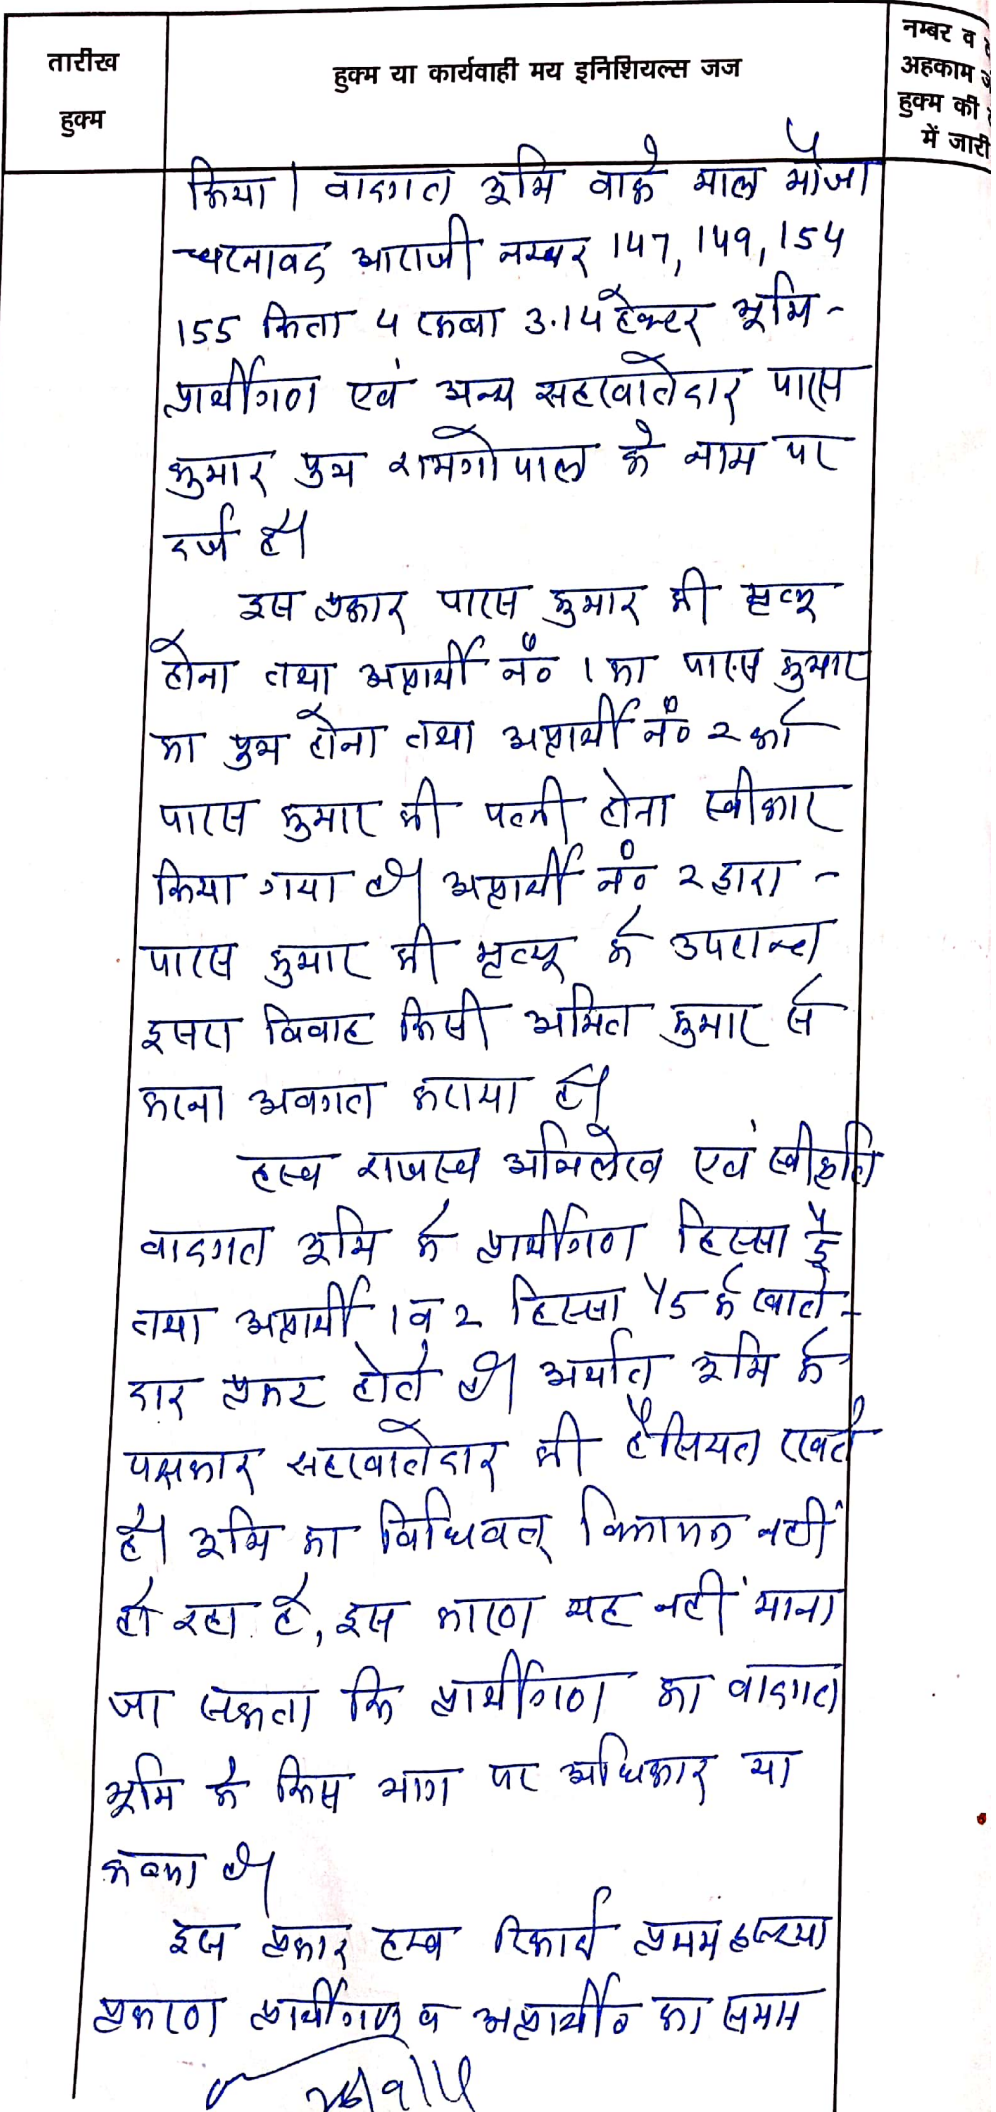 तारीख
हुक्म
हुक्म या कार्यवाही मय इनिशियल्स जज
नम्बर व
अहकाम
हुक्म की
में जारी
किया। वादगत भूमि वाके माल मौजा
आराजी नम्बर 147, 149, 154
155 किता 4 रकबा 3.14 हैक्टर भूमि -
प्रार्थीगण एवं अन्य सहखातेदार पारस
कुमार पुत्र रामगोपाल के नाम पर
दर्ज है।
इस प्रकार पारस कुमार की मृत्यू
होना तथा अप्रार्थी नं० 1 का पारस कुमार
का पुत्र होना तथा अप्रार्थी नं० 2 का
पारस कुमार की पत्नी होना स्वीकार
किया गया है। अप्रार्थी नं० 2 द्वारा -
पारस कुमार की मृत्यू के उपरान्त
दुसरा विवाह किसी अमित कुमार से
करना अवगत कराया है।
हस्ब राजस्व अभिलेख एवं स्वीकृति
वादगत भूमि के प्रार्थीगण हिस्सा 4/5
तथा अप्रार्थी 1 व 2 हिस्सा 1/5 के खाते-
दार प्रकट होते है। अर्थात भूमि के
पक्षकार सहखातेदार की हैसियत रखते
है। भूमि का विधिवत् विभाजन नहीं
हो रहा है, इस कारण यह नहीं माना
जा सकता कि प्रार्थीगण का वादगत
भूमि के किस भाग पर अधिकार या
कब्जा है।
इस प्रकार हस्ब रिकार्ड प्रथम दृष्टया
प्रकरण प्रार्थीगण व अप्रार्थी० का समान